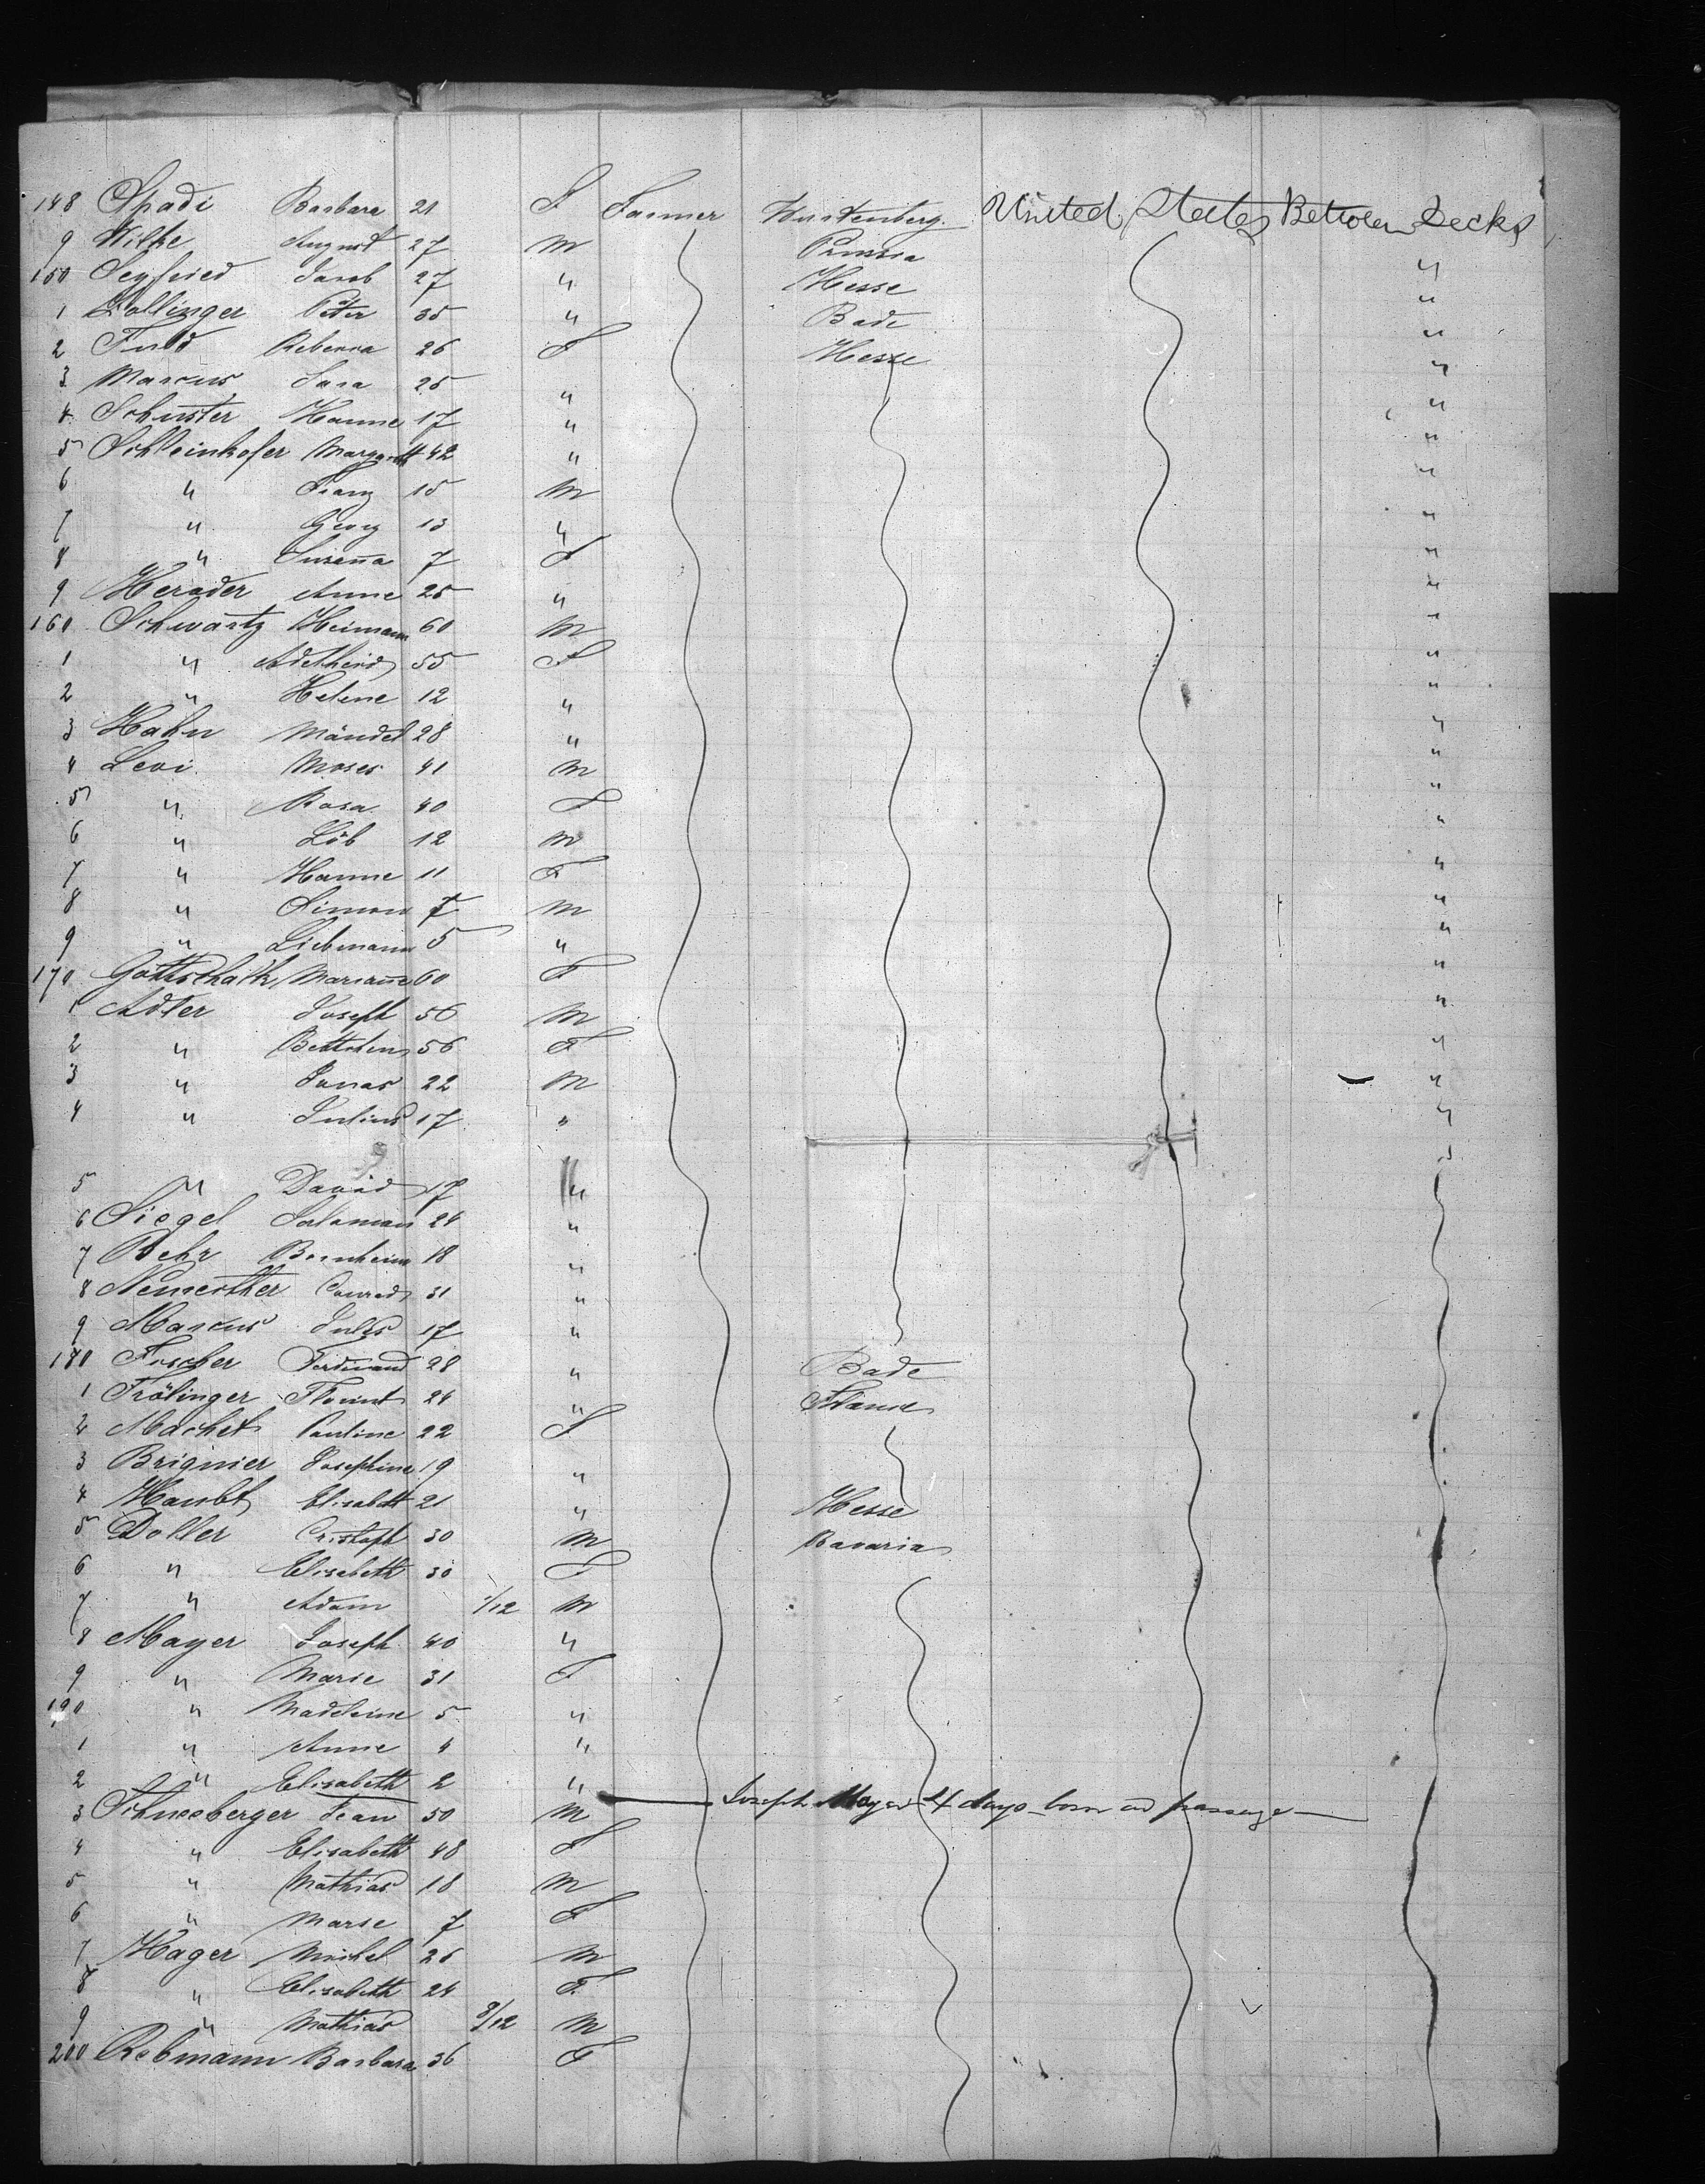 148 Spadi Barbara 21 F Farmer Wurtenberg. United States Between Decks
9 Wilke August 27 M Prussia "
150 Seyfried Jacob 27 " Hesse "
1 Dollinger Peter 35 " Bade "
2 Fuld Rebecca 26 F Hesse "
3 Marcus Sara 25 " "
4 Schuster Hanne 17 " "
5 Schleinkofer Margareth 42 " "
6 " Franz 15 M "
7 " Georg 13 " "
8 " Susanna 7 F "
9 Herader Anne 25 " "
160 Schwartz Heimann 60 M "
1 " Adelheid 55 F "
2 " Helene 12 " "
3 Hahn Mändel 28 " "
4 Levi Moses 41 M "
5 " Rosa 40 F "
6 " Löb 12 M "
7 " Hanne 11 F "
8 " Simon 7 M "
9 " Liebmann 5 " "
170 Gottschalk Marianne 60 F "
1 Adler Joseph 56 M "
2 " Bettchen 56 F "
3 " Jonas 22 M "
4 " Julius 17 " "
5 " David 17 " "
6 Siegel Salaman 24 "
7 Behr Bernheim 18 "
8 Conrad 31 "
9 Marcus Jules 17 "
180 Fischer Ferdinand 28 " Bade
1 Frölinger Florent 24 " France
2 Machet Pauline 22 F
3 Brignier Josephine 19 "
4 Haubt Elisabeth 21 " Hesse
5 Doller Cristoph 30 M Bavaria
6 " Elisabeth 30 F
7 " Adam 1/12 M
8 Mayer Joseph 40 "
9 " Marie 31 F
190 " Madeleine 5 "
1 " Anne 4 "
2 " Elisabeth 2 "
Joseph Mayer 4 days born on passage
3 Schneeberger Jean 50 M
4 " Elisabeth 48 F
5 " Mathias 18 M
6 " Marie 7 F
7 Hager Michel 26 M
8 " Elisabeth 24 F
9 " Mathias 8/12 M
200 Rebmann Barbara 36 F